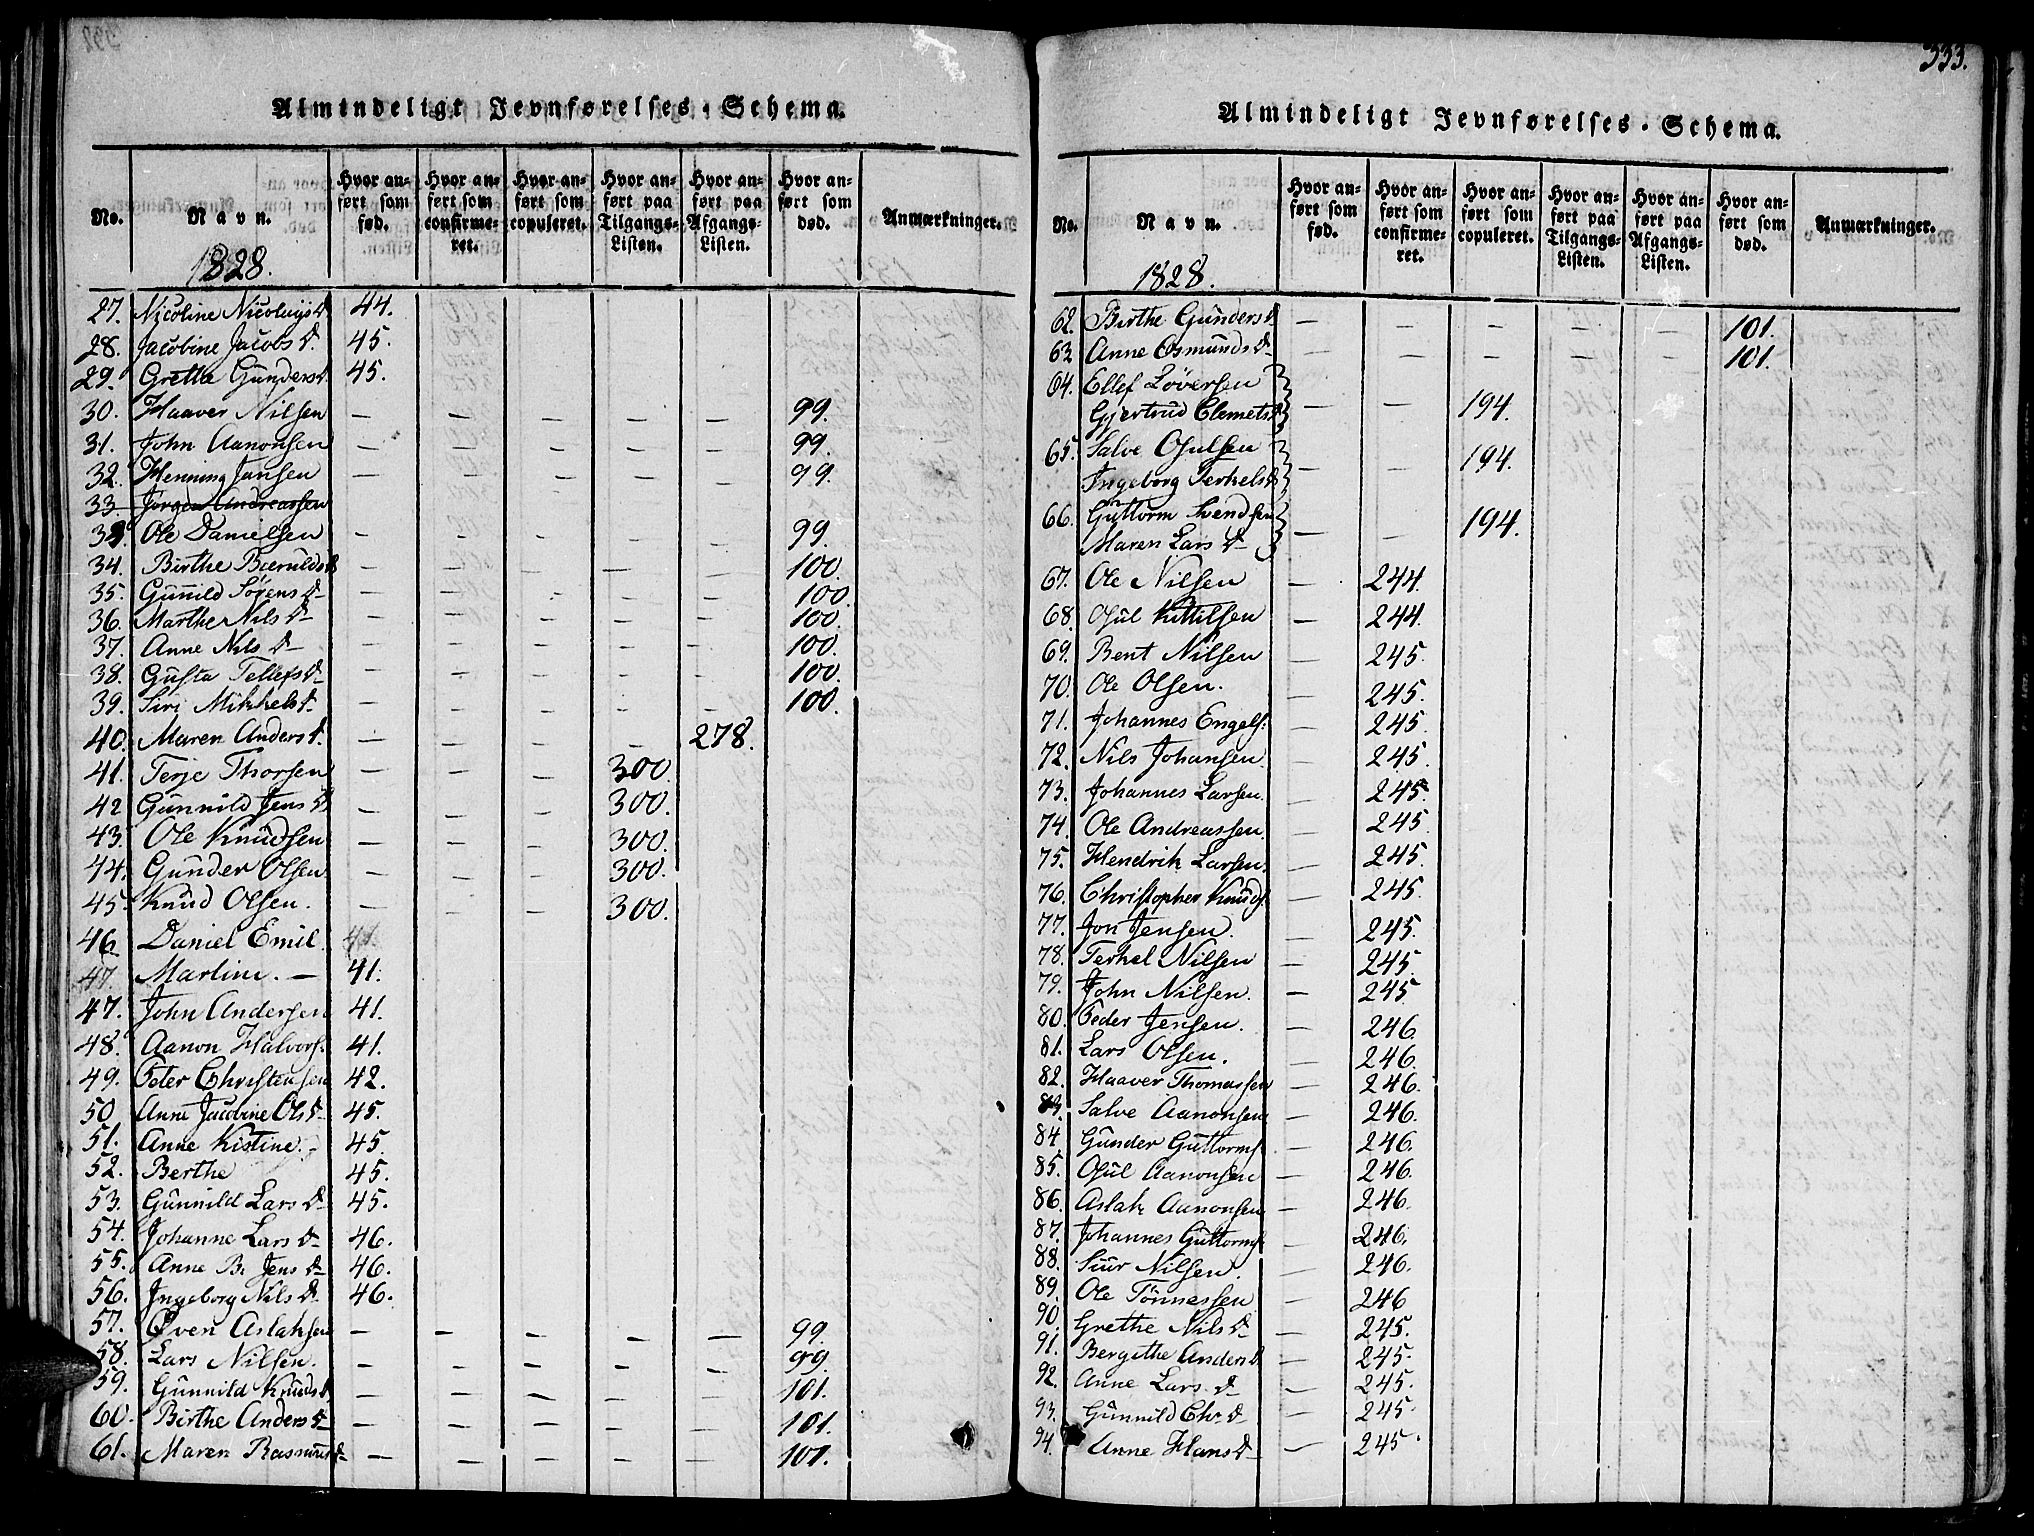 Almindeligt Jevnførelses-Schema.
No. Navn. Hvor anført som fød. Hvor anført som confirmeret. Hvor anført som copuleret. Hvor anført paa Tilgangs-Listen. Hvor anført paa Afgangs-Listen. Hvor anført som død. Anmærkninger.
1828.
27. Nicoline Nicolaysd 44.
28. Jacobine Jacobsd. 45.
29. Grethe Gundersd. 45.
30. Haaver Nilsen — — — — — 99.
31. John Aanonsen — — — — — 99.
32. Henning Jansen — — — — — 99.
33. Jørgen Andreassen
33. Ole Danielsen — — — — — 99.
34. Birthe Bærulds d — — — — — 100.
35. Gunild Sørens d — — — — — 100.
36. Marthe Nils d — — — — — 100.
37. Anne Nils d — — — — — 100.
38. Gusta Tellefs d — — — — — 100.
39. Siri Mikkels d. — — — — — 100.
40. Maren Anders d. — — — — 278.
41. Terje Thorsen — — — 300.
42 Gunnild Jens d — — — 300.
43. Ole Knudsen — — — 300.
44. Gunder Olsen — — — 300.
45. Knud Olsen. — — — 300.
46 Daniel Emil. 41.
47. Martin. — 41.
47. John Andersen 41.
48. Aanon Halvors: 41.
49. Peter Christensen 42.
50. Anne Jacobine Ols d 45.
51. Anne Kistine. - 45.
52. Berthe 45.
53. Gunnild Lars d 45.
54. Johanne Lars d 46.
55. Anne B. Jens d 46.
56. Ingeborg Nils d 46.
57. Even Aslaksen — — — — — 99.
58. Lars Nilsen. — — — — — 99.
59. Gunnild Knuds d — — — — — 101.
60. Birthe Anders d — — — — — 101.
61. Maren Rasmus d — — — — — 101.
333.
Almindeligt Jevnførelses-Schema.
No. Navn. Hvor anført som fød. Hvor anført som confirmeret. Hvor anført som copuleret. Hvor anført paa Tilgangs-Listen. Hvor anført paa Afgangs-Listen. Hvor anført som død. Anmærkninger.
1828.
62. Birthe Gunders d — — — — — 101.
63 Anne Osmunds d — — — — — 101.
64. Ellef Løversen
Gjertrud Clemets d — — 194.
65. Salve Osulsen — — 194.
Ingeborg Terkels d
66. Guttorm Svendsen — — 194.
Maren Lars d
67. Ole Nilsen — 244.
68. Osul Kittilsen — 244.
69. Bent Nilsen — 245.
70. Ole Olsen. — 245.
71. Johannes Engels: — 245.
72. Nils Johansen — 245.
73. Johannes Larsen. — 245.
74. Ole Andreassen. — 245.
75. Hendrik Larsen. — 245.
76. Christopher Knuds. — 245.
77. Jon Jensen. — 245.
78. Terkel Nilsen — 245.
79. John Nilsen. — 245.
80. Peder Jensen. — 246.
81. Lars Olsen. — 246.
82. Haaver Thomassen — 246.
83. Salve Aanonsen — 246.
84 Gunder Guttorms. — 246.
85. Osul Aanonsen — 246.
86. Aslak Aanonsen — 246.
87. Johannes Guttorms — 246.
88. Siur Nilsen. — 246.
89. Ole Tönnessen — 246
90. Grethe Nils d — 245.
91. Bergithe Anders d — 245.
92. Anne Lars d — 245.
93. Gunnild Chr. d — 245.
94. Anne Hans d — 245.